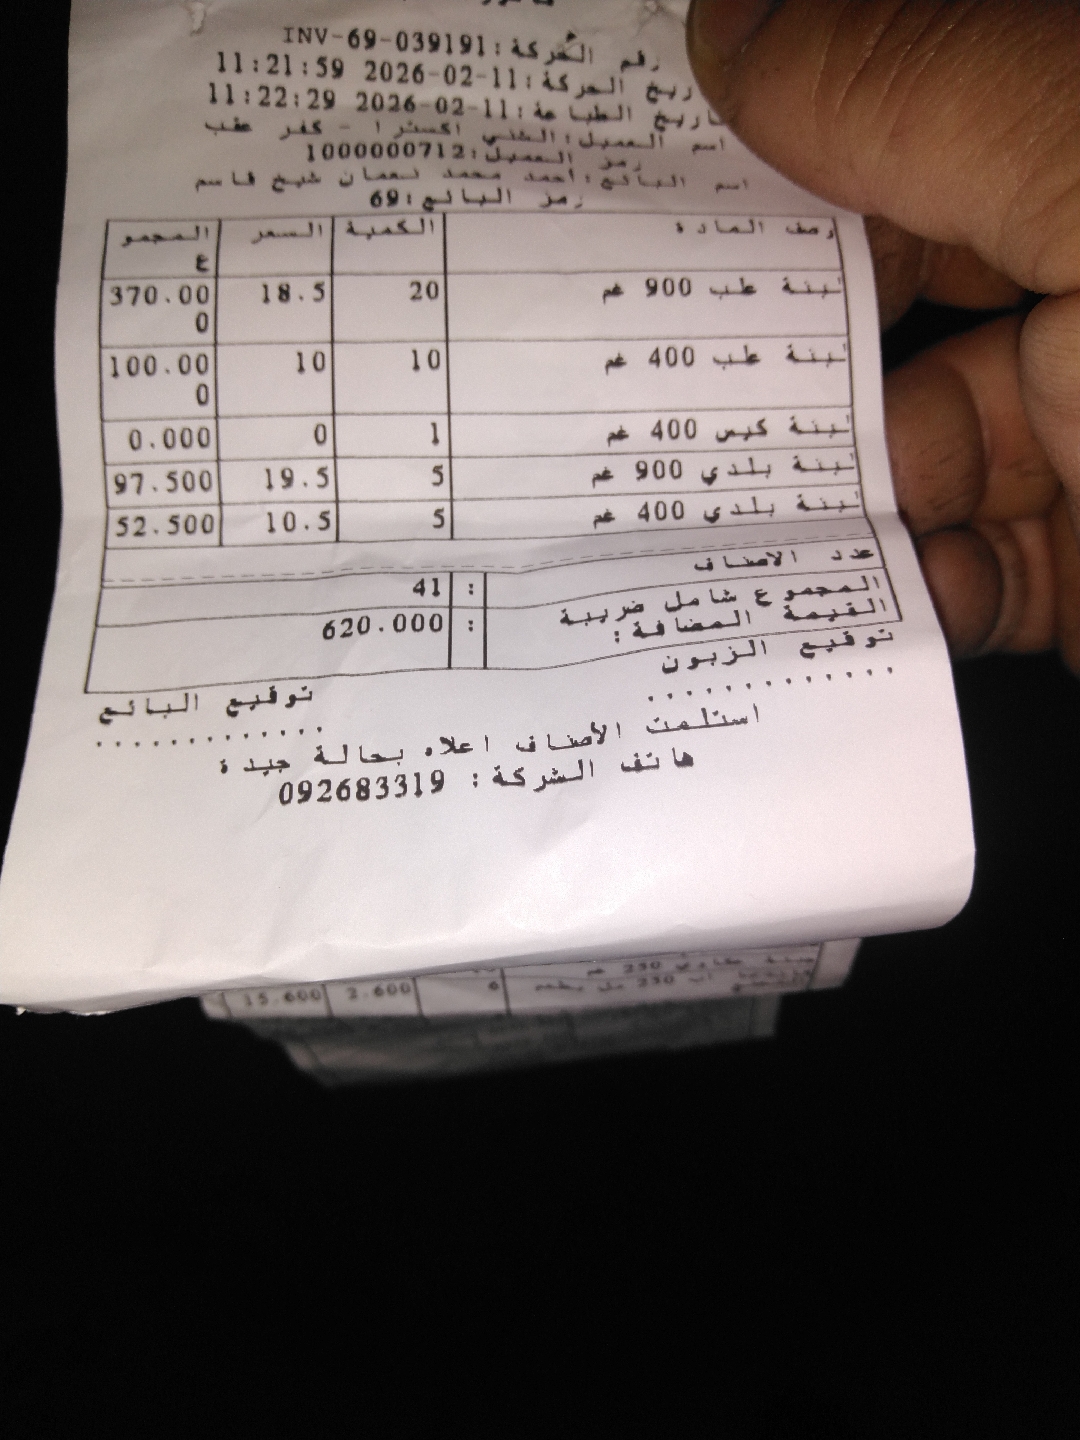 رقم الحركة: INV-69-039191
تاريخ الحركة: 2026-02-11 11:21:59
تاريخ الطباعة: 2026-02-11 11:22:29
اسم العميل: الشني اكسترا - كفر عقب
رمز العميل: 1000000712
اسم البائع: احمد محمد نعمان شيخ قاسم
رمز البائع: 69
وصف المادة الكمية السعر المجموع
لبنة طب 900 غم 20 18.5 370.000
لبنة طب 400 غم 10 10 100.000
لبنة كيس 400 غم 1 0 0.000
لبنة بلدي 900 غم 5 19.5 97.500
لبنة بلدي 400 غم 5 10.5 52.500
عدد الاصناف : 41
المجموع شامل ضريبة
القيمة المضافة: : 620.000
توقيع الزبون توقيع البائع
............. .............
استلمت الأصناف اعلاه بحالة جيدة
هاتف الشركة : 092683319
250 غم
250 مل 6 2.600 15.600